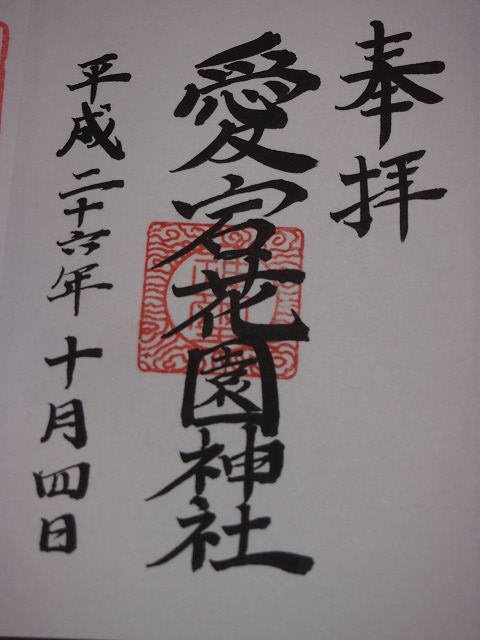 奉拝
愛宕花園神社
平成二十六年十月四日